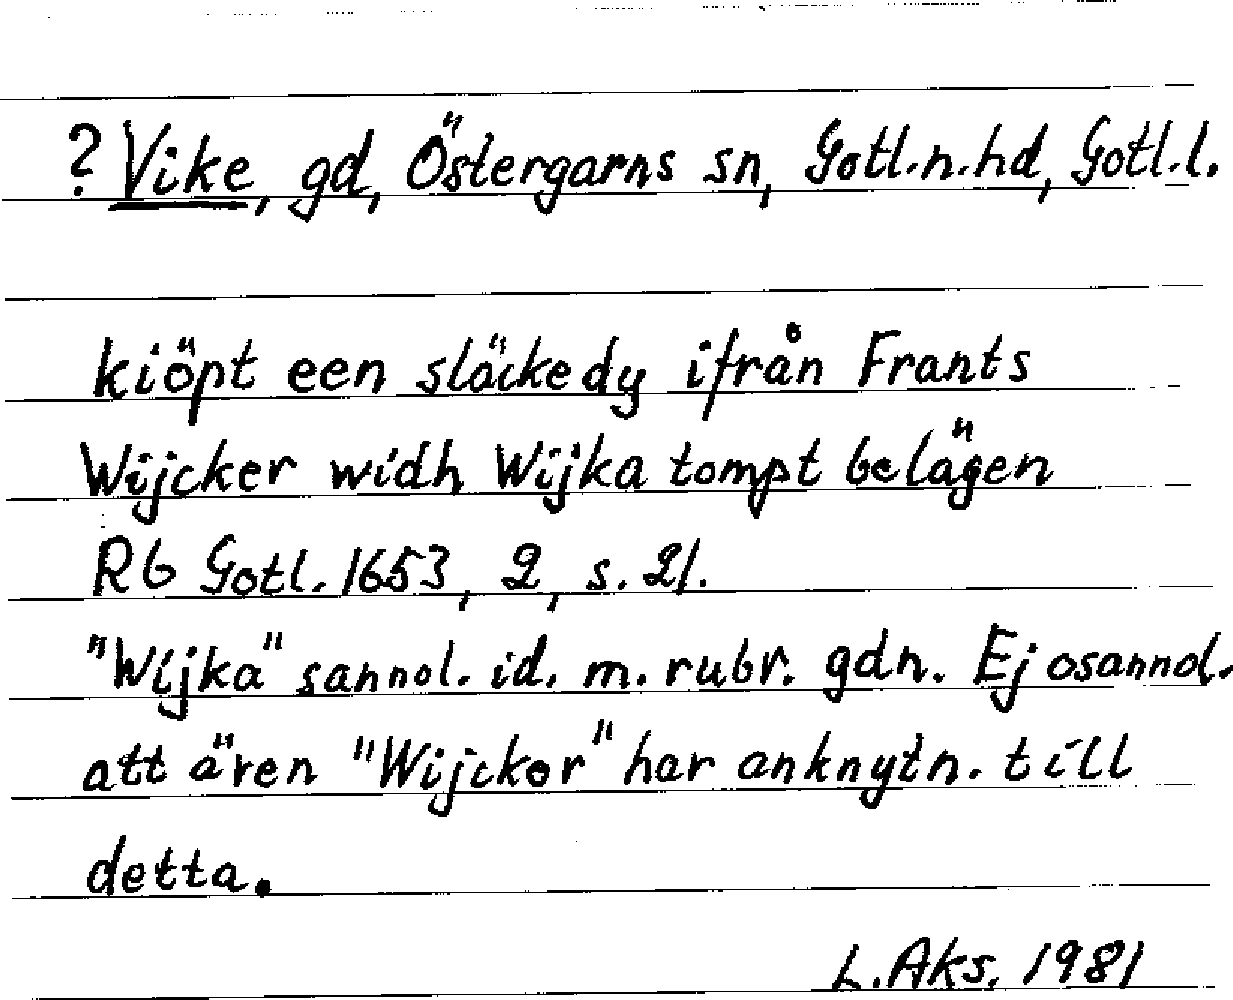 ? Vike, gd, Östergarns sn, Gotl.n.hd, Gotl.l.
kiöpt een släckedy ifrån Frants
Wijcker widh Wijka tompt belägen
Rb Gotl. 1653, 2, s. 21.
"Wijka" sannol. id. m. rubr. gdn. Ej osannol.
att även "Wijcker" har anknytn. till
detta.
L.Aks. 1981